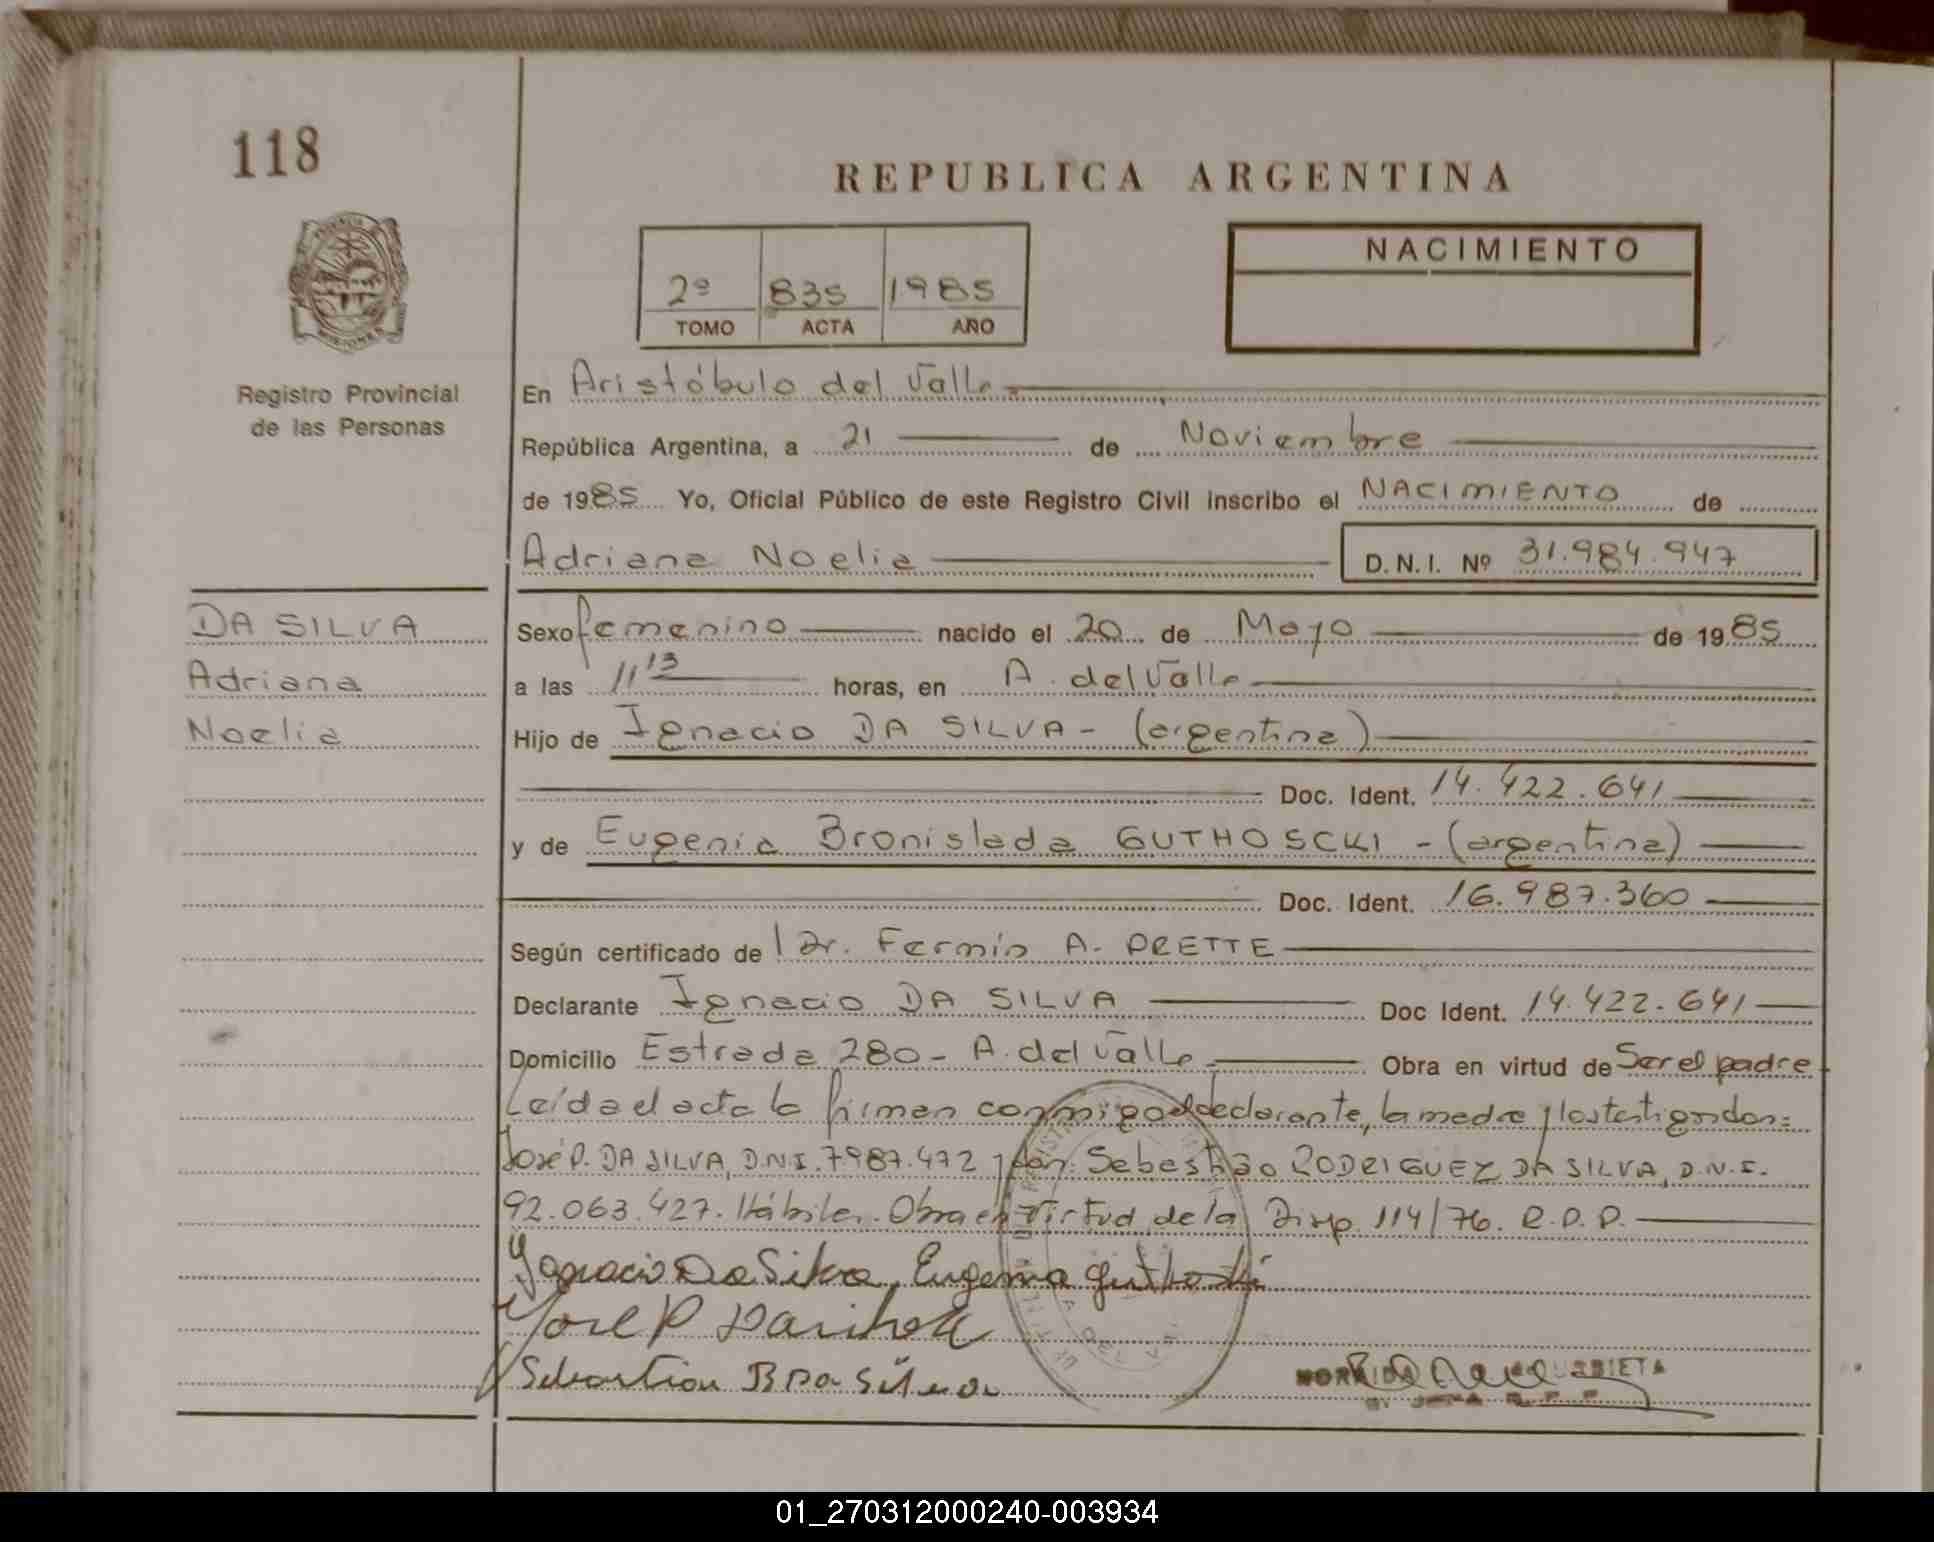 118
REPUBLICA ARGENTINA
NACIMIENTO
2º 835 1985
TOMO ACTA AÑO
Registro Provincial
de las Personas
En Aristóbulo del Valle
República Argentina, a 21 de Noviembre
de 1985 Yo, Oficial Público de este Registro Civil inscribo el NACIMIENTO de
Adriana Noelia D.N.I. Nº 31.984.947
DA SILVA
Adriana
Noelia
Sexo femenino nacido el 20 de Mayo de 1985
a las 11 13 horas, en A. del Valle
Hijo de Ignacio DA SILVA - (argentina)
Doc. Ident. 14.422.641
y de Eugenia Bronislada GUTHOSCKI - (argentina)
Doc. Ident. 16.987.360
Según certificado de l Dr. Fermín A. PRETTE
Declarante Ignacio DA SILVA Doc Ident. 14.422.641
Domicilio Estrada 280 - A. del Valle Obra en virtud de Ser el padre
Leída el acta la firman conmigo el declarante, la madre y los testigos don:
José P. DA SILVA, D.N.I. 7.987.472 y don: Sebastião RODRIGUEZ DA SILVA, D.N.I.
92.063.427. Hábiles. Obra en virtud de la Disp. 114/76. R.P.P.
Ignacio Da Silva Eugenia Guthoski
Jose P
Sebastian R Da Silva
01_270312000240-003934